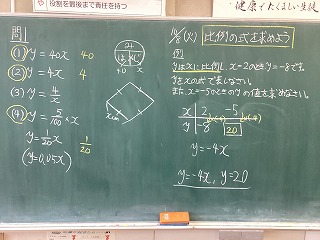 役割を最後まで責任を持つ
健康でたくましい生徒
問1
① y=40x 40
② y=4x 4
(3) y=4/x
④ y=5/100×x
y=1/20x 1/20
(y=0.05x)
y
40 x
xcm
(火) 比例の式を求めよう
例
yはxに比例し、x=2のときy=-8です。
yをxの式で表しなさい。
また、x=-5のときのyの値を求めなさい。
x 2 -5
y -8 20
y=-4x
y=-4x, y=20